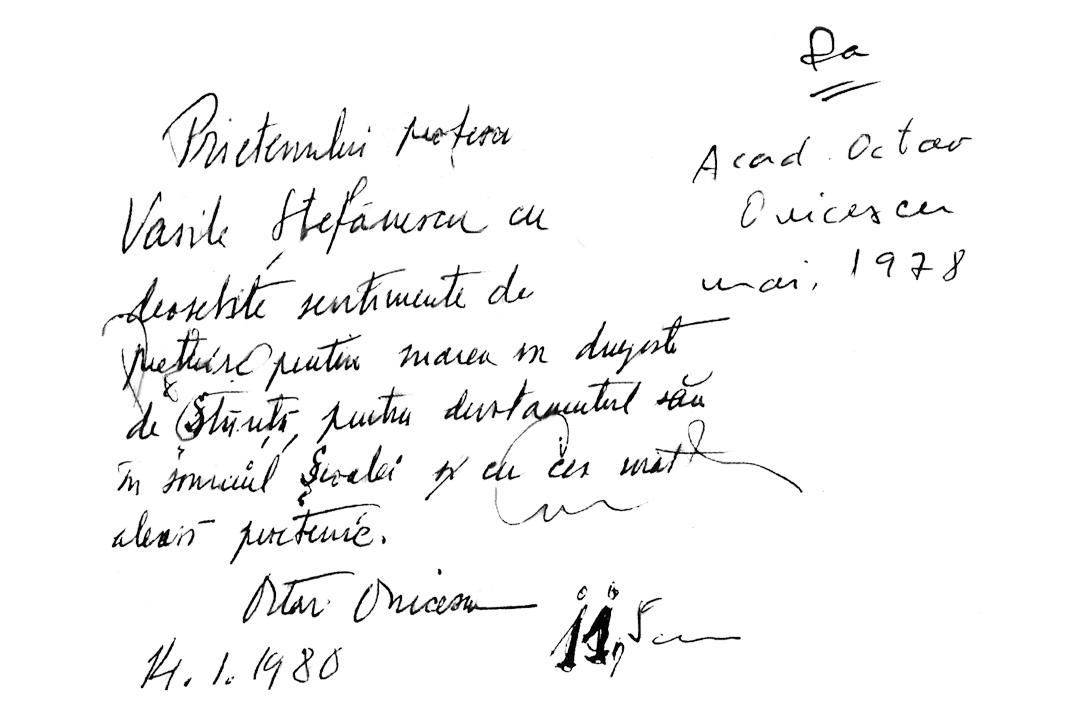 Da
Acad. Octav
Onicescu
mai, 1978
Prietenului profesor
Vasile Ștefănescu cu
deosebite sentimente de
prețuire pentru marea sa dragoste
de Știință, pentru devotamentul său
în Școalei și cu cea mai
aleasă prietenie.
Octav Onicescu
14.1.1980
11,5 cm